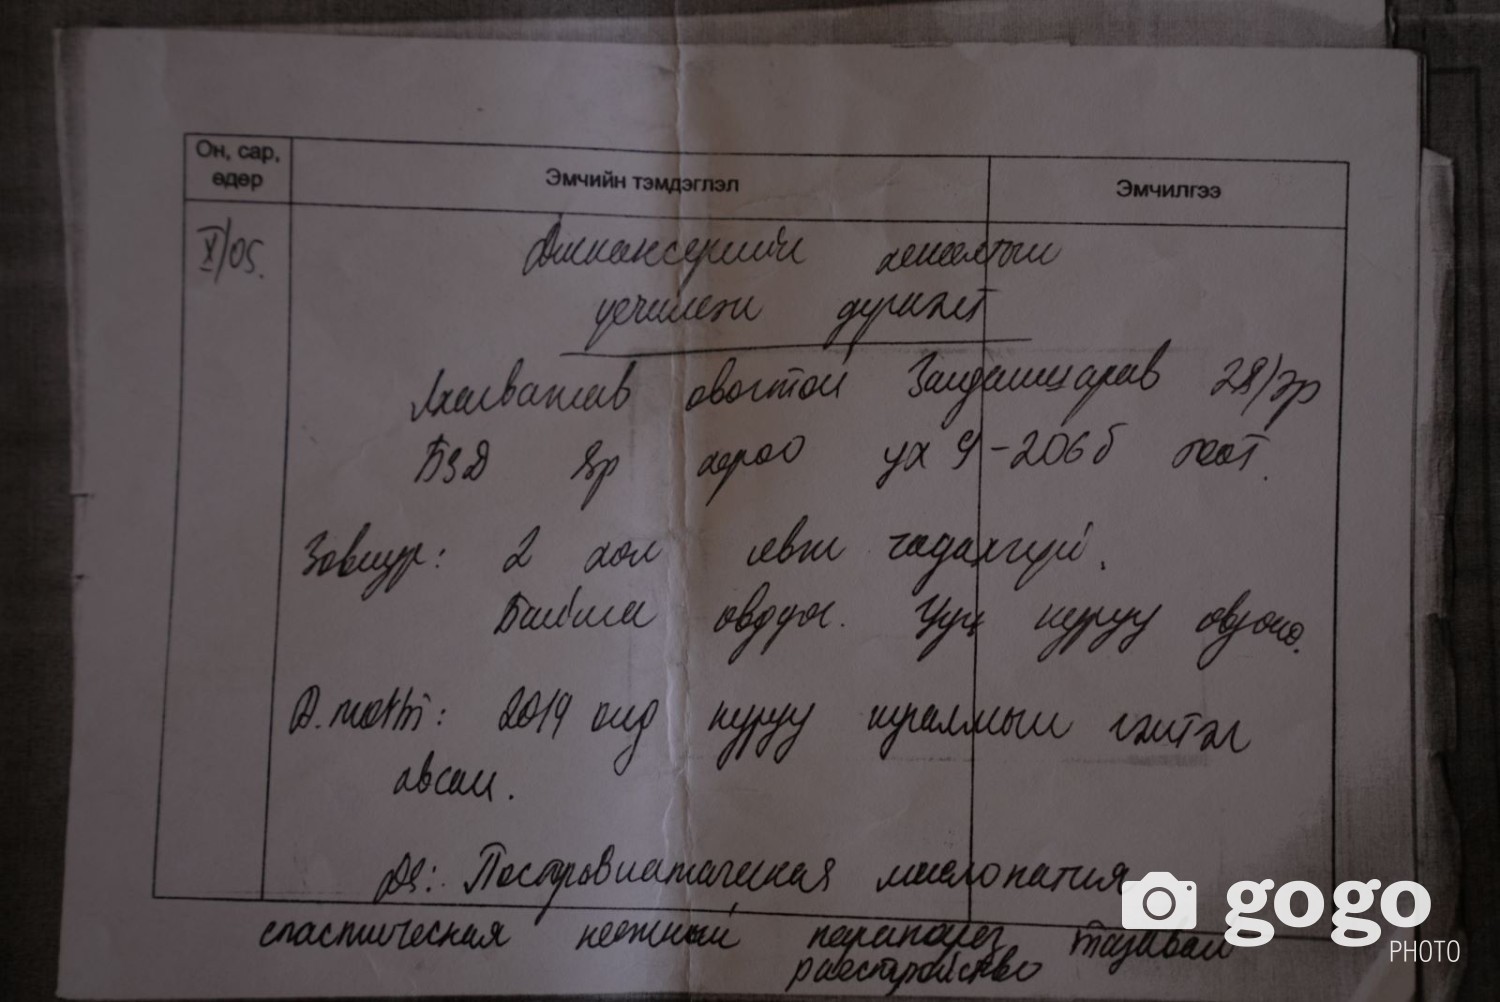 Он, сар,
өдөр
Эмчийн тэмдэглэл
Эмчилгээ
X/05.
Диспансерийн хяналтын
үечилсэн дүгнэлт
Лхагважав овогтой Занданшарав 28/эр
БЗД 8р хороо ух 9-206б тоот.
Зовиур: 2 хол явж чадахгүй.
Байнга өвдөнө. Ууц нуруу өвдөнө.
2019 онд нуруу нугалмын гэмтэл
авсан.
DS: Посттравматическая миелопатия
спастическая нижний парапарез тазовый
расстройство
gogo
PHOTO